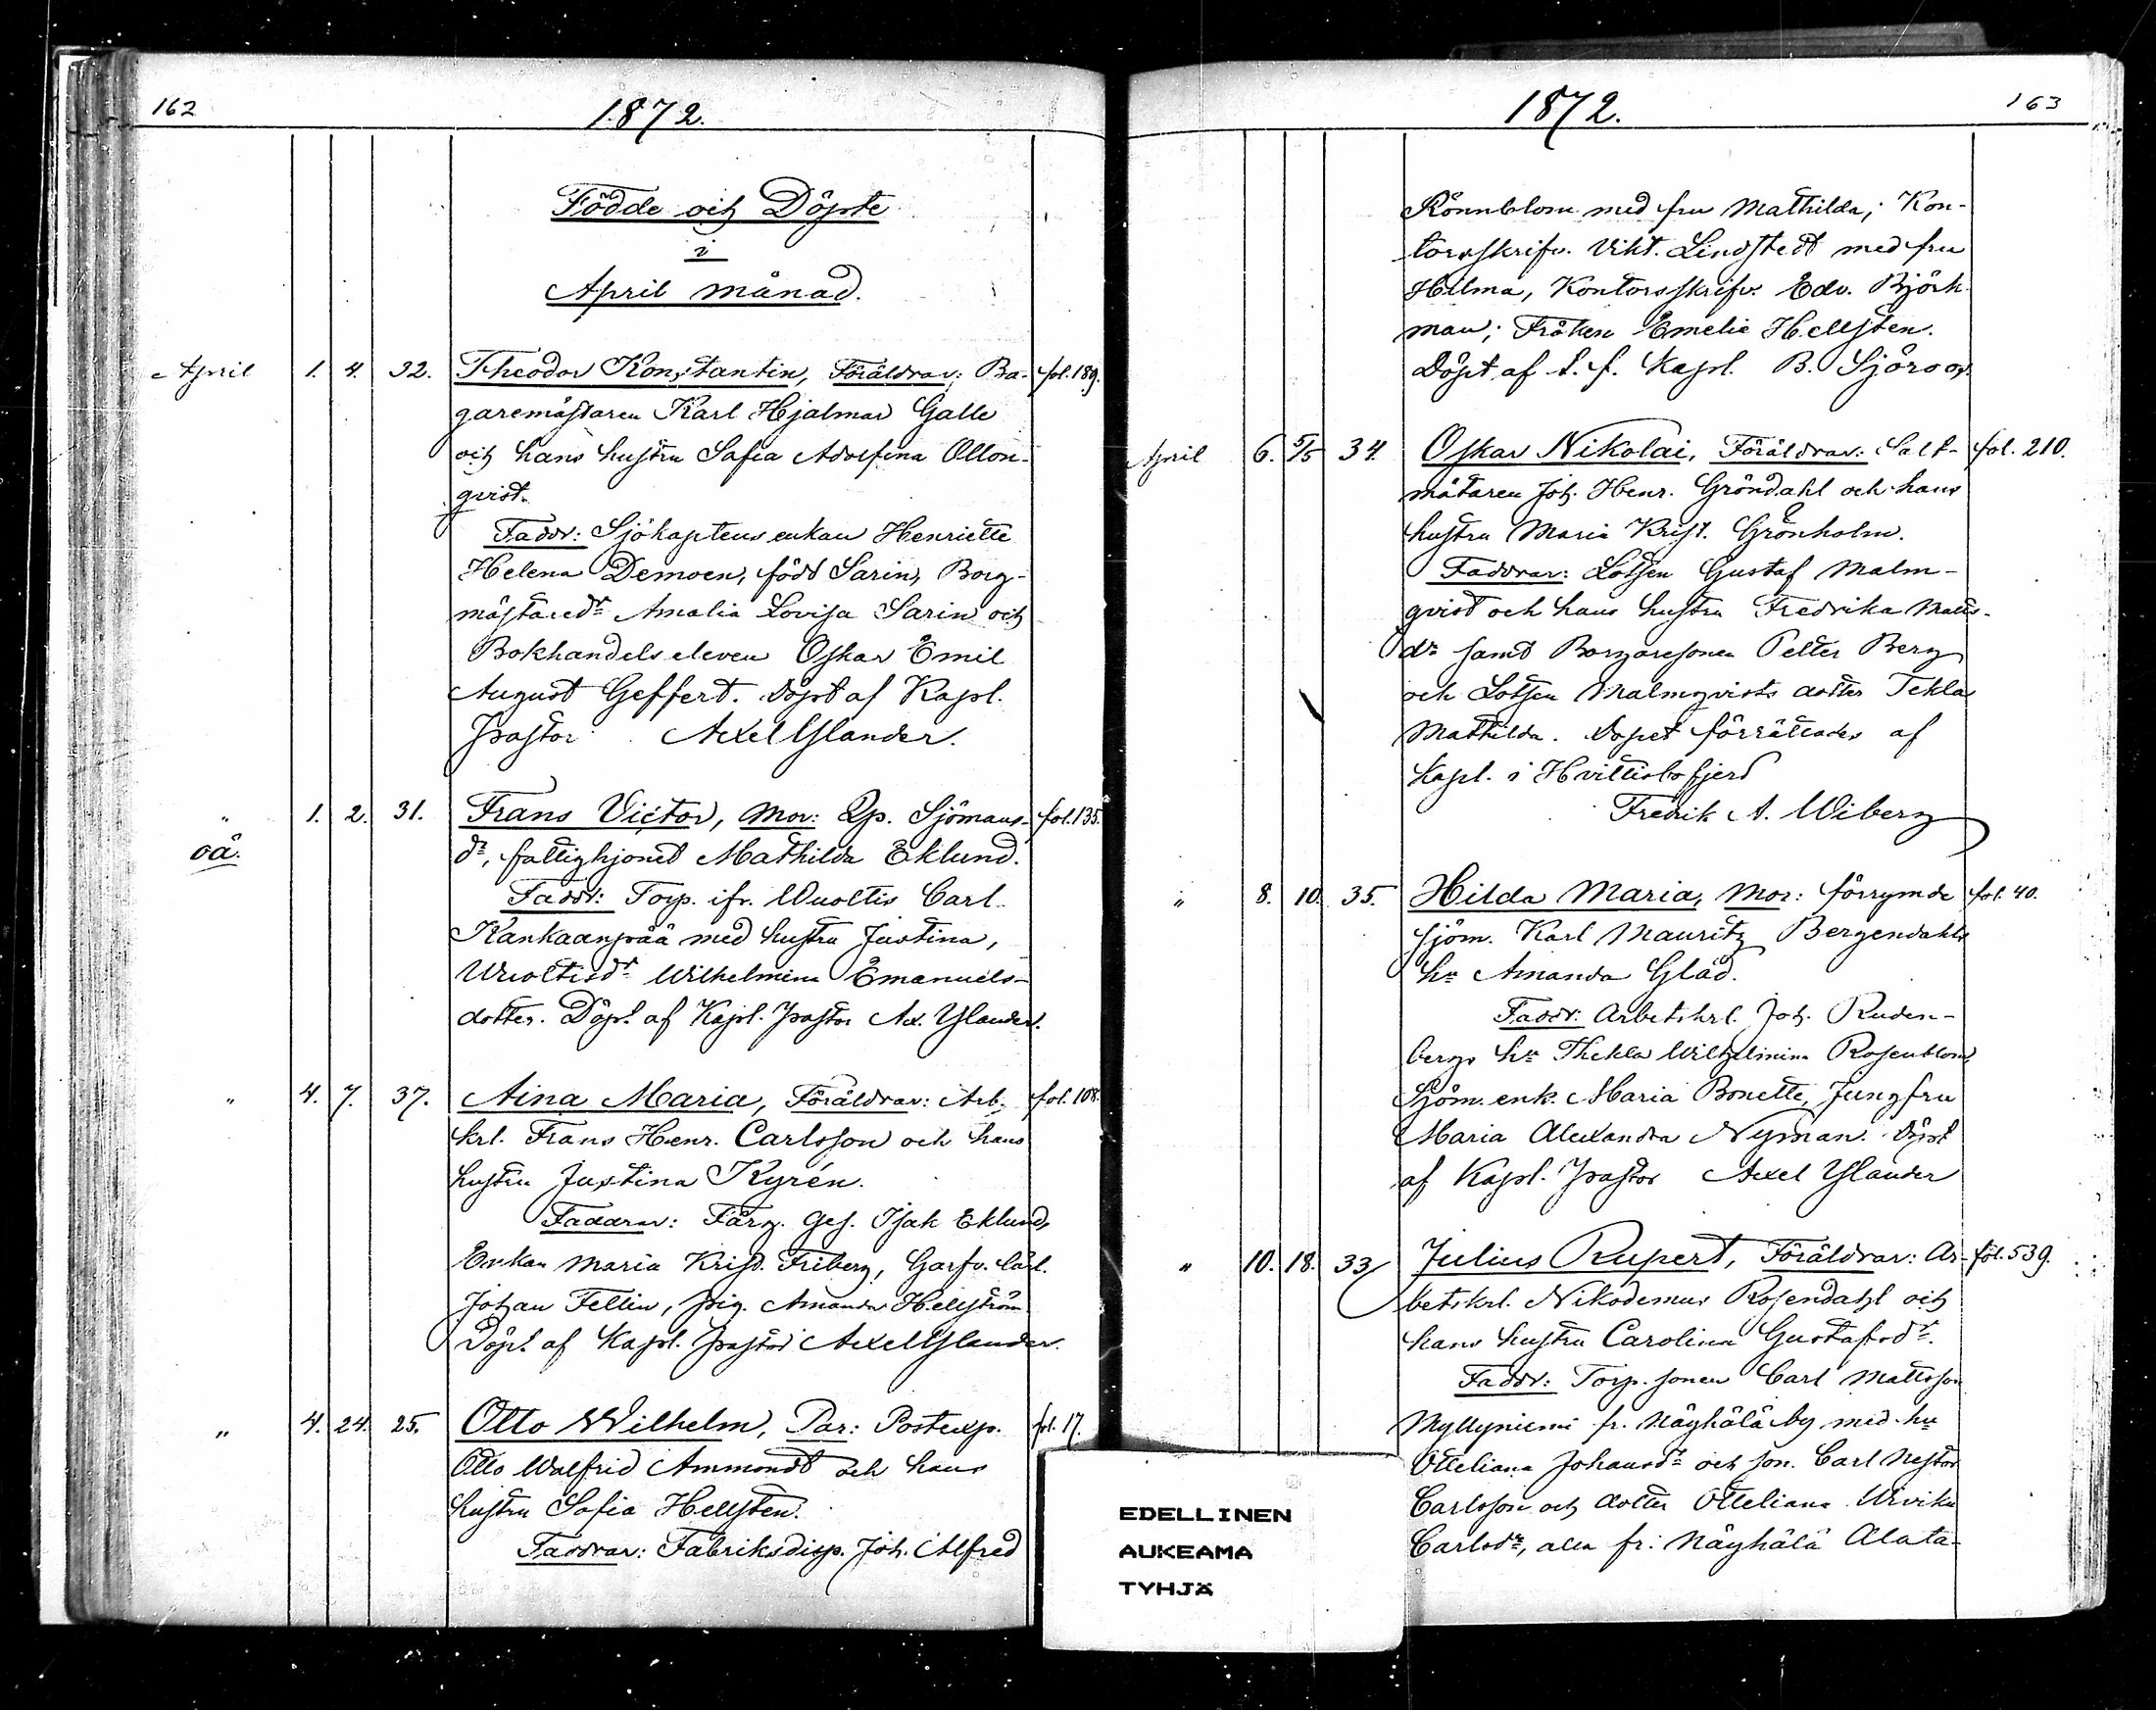 162
1872.
Födde och Döpte
i
April månad.
April 1. 4. 32. Theodor Konstantin, Föräldrar: Ba- fol. 189.
garemästaren Karl Hjalmar Galle
och hans hustru Sofia Adolfina Ollon-
qvist.
Faddr: Sjökaptens enkan Henriette
Helena Demoen, född Sarin, Borg-
mästaredr Amalia Lovisa Sarin och
Bokhandels eleven Oskar Emil
August Geffert. Döpt af Kapl.
Pastor Axel Ylander.
" 1. 2. 31. Frans Victor, Mor: Qp. Sjömans- fol. 135.
oä. dr, fattighjonet Mathilda Eklund.
Faddr: Torp. ifr. Wuoltis Carl
Kankaanpää med hustru Justina,
Wuoltisdr Wilhelmina Emanuels-
dotter. Döpt af Kapl. Pastor Ax. Ylander.
" 4. 7. 37. Aina Maria, Föräldrar: Arb. fol. 108.
krl. Frans Henr. Carlsson och hans
hustru Justina Kyrén.
Faddrar: Färg. Ges. Isak Eklund,
Enkan Maria Krist. Friberg, Garfv. lärl.
Johan Fellin, pig. Amanda Hellström
Döpt af Kapl. Pastor Axel Ylander.
" 4. 24. 25. Otto Wilhelm, Par: Postexp. fol. 17.
Otto Walfrid Ammondt och hans
hustru Sofia Hellsten.
Faddrar: Fabriksdisp. Joh. Alfred
EDELLINEN
AUKEAMA
TYHJÄ
1872.
163
Rönnblom med fru Mathilda; Kon-
torsskrifv. Vikt. Lindstedt med fru
Hilma, Kontorsskrifv. Edv. Björk-
man; Fröken Emelie Hellsten.
Döpt af t. f. Kapl. B. Sjöroos.
April 6. 5/5 34. Oskar Nikolai, Föräldrar: Salt- fol. 210.
mätaren Joh. Henr. Gröndahl och hans
hustru Maria Krist. Grönholm.
Faddrar: Lotsen Gustaf Malm-
qvist och hans hustru Fredrika Matts-
dr samt Borgaresonen Petter Berg
och Lotsen Malmqvists dotter Tekla
Mathilda. Dopet förrättades af
Kapl. i Hvittisbofjerd
Fredrik A. Wiberg
" 8. 10. 35. Hilda Maria, Mor: förrymde fol. 40.
sjöm. Karl Mauritz Bergendahls
hu Amanda Gläd.
Faddr: Arbetskrl. Joh. Ruden-
bergs hu Thekla Wilhelmina Rosenblom,
Sjöm. enk. Maria Bonette, Jungfru
Maria Alexandra Nyman. Döpt
af Kapl. Pastor Axel Ylander
" 10. 18. 33 Julius Rupert, Föräldrar: Ar- fol. 539.
betskrl. Nikodemus Rosendahl och
hans hustru Carolina Gustafsdr.
Faddr: Torp. sonen Carl Mattsson
Myllyniemi fr. Näyhälä by med hu
Otteliana Johansdr och son. Carl Nestor
Carlsson och dotter Otteliana Ulrika
Carlsdr, alla fr. Näyhälä Alata-